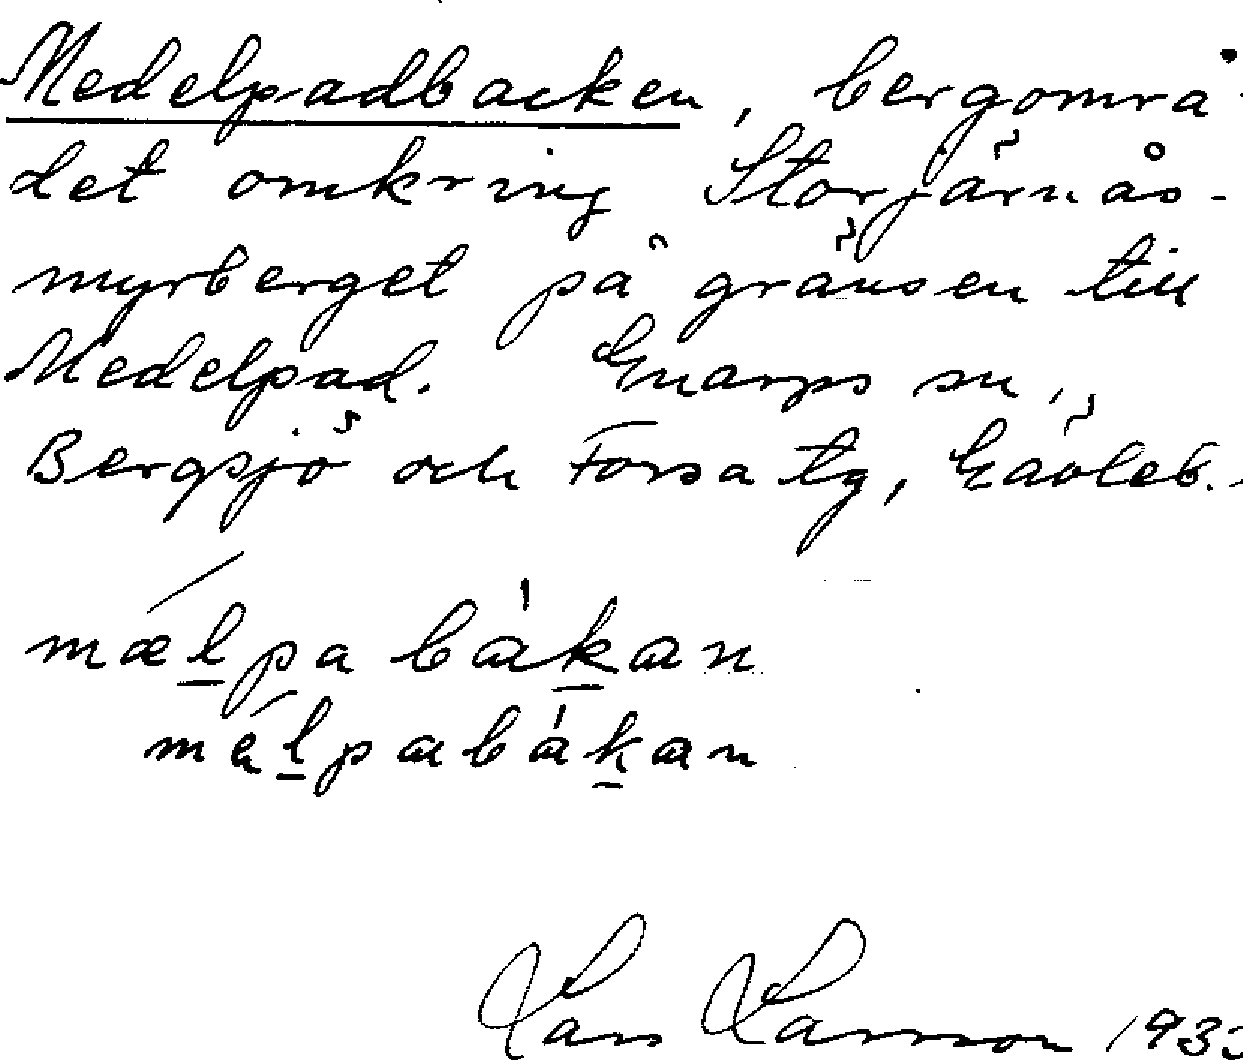 Medelpadbacken, bergområ-
det omkring Storjärnås-
myrberget på gränsen till
Medelpad. Gnarps sn,
Bergsjö och Forsa tg, Gävleb.
mælpa bákan
mélpabákan
Lars Larsson